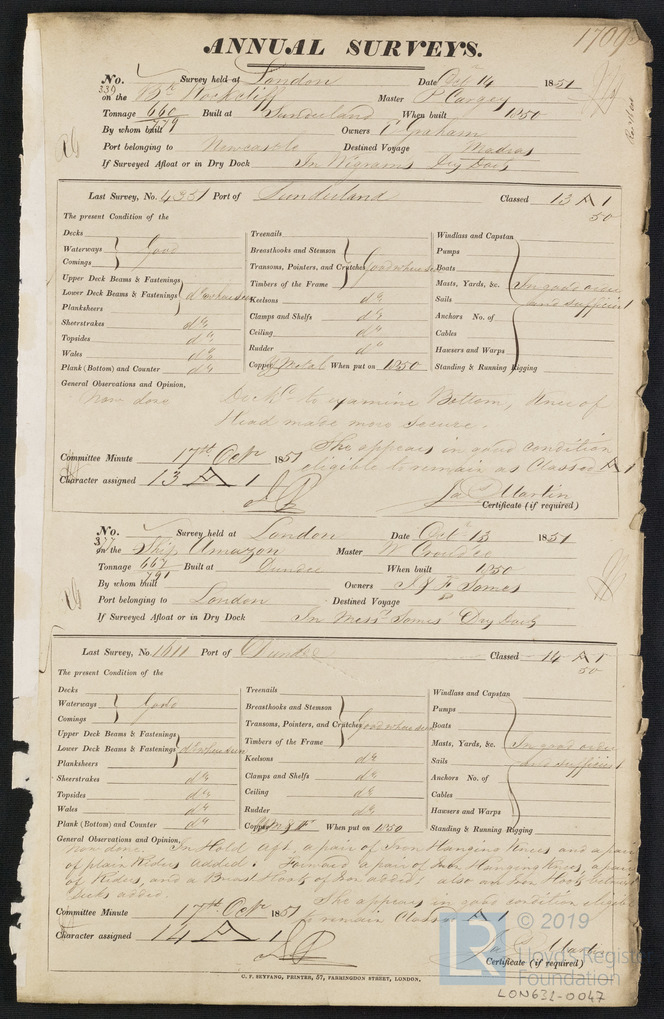 ANNUAL SURVEYS.
No. 339 Survey held at London Date Octr 14 1851
on the Bk Master P Cargey
Tonnage 660 779 Built at Sunderland When built 1850
By whom built Owners T Graham
Port belonging to Newcastle Destined Voyage Madras
If Surveyed Afloat or in Dry Dock In Wigrams Dry Dock
Last Survey, No. 4351 Port of Sunderland Classed 13 A 1
50
The present Condition of the
Decks
Waterways
Comings
Good
Upper Deck Beams & Fastenings
Lower Deck Beams & Fastenings
Planksheers
do where seen
Sheerstrakes do
Topsides do
Wales do
Plank (Bottom) and Counter do
Treenails
Breasthooks and Stemson
Transoms, Pointers, and Crutches
Timbers of the Frame
Good where seen
Keelsons do
Clamps and Shelfs do
Ceiling do
Rudder do
Copper Y Metal When put on 1850
Windlass and Capstan
Pumps
Boats
Masts, Yards, &c.
Sails
Anchors No. of
Cables
Hawsers and Warps
Standing & Running Rigging
In good order
and sufficient
General Observations and Opinion,
Now done Dockd to examine Bottom, Knee of
Head made more secure.
She appears in good condition
eligible to remain as Classed A 1
Committee Minute 17th Octr 1851
Character assigned 13 A 1
Jas Martin
Certificate (if required)
No. 327 Survey held at London Date Octr 13 1851
on the Ship Amazon Master W
Tonnage 667 791 Built at Dundee When built 1850
By whom built Owners J & F Somes
Port belonging to London Destined Voyage
If Surveyed Afloat or in Dry Dock In Messrs Somes' Dry Dock
Last Survey, No. 1611 Port of Dundee Classed 14 A 1
50
The present Condition of the
Decks
Waterways
Comings
Good
Upper Deck Beams & Fastenings
Lower Deck Beams & Fastenings
Planksheers
do where seen
Sheerstrakes do
Topsides do
Wales do
Plank (Bottom) and Counter do
Treenails
Breasthooks and Stemson
Transoms, Pointers, and Crutches
Timbers of the Frame
Good where seen
Keelsons do
Clamps and Shelfs do
Ceiling do
Rudder do
Copper When put on 1850
Windlass and Capstan
Pumps
Boats
Masts, Yards, &c.
Sails
Anchors No. of
Cables
Hawsers and Warps
Standing & Running Rigging
In good order
and sufficient
General Observations and Opinion,
Now done. In Hold aft, a pair of Iron Hanging Knees and a pair
of plain Riders added. Forward a pair of Iron Hanging Knees, a pair
of Riders, and a Breast Hook of Iron added, also an Iron Hook between
decks added.
She appears in good condition eligible
to remain Classed A 1
Committee Minute 17th Octr 1851
Character assigned 14 A 1
Jas Martin
Certificate (if required)
C. F. SEYFANG, PRINTER, 57, FARRINGDON STREET, LONDON.
© 2019
LR
Lloyd's Register
Foundation
LON631-0047